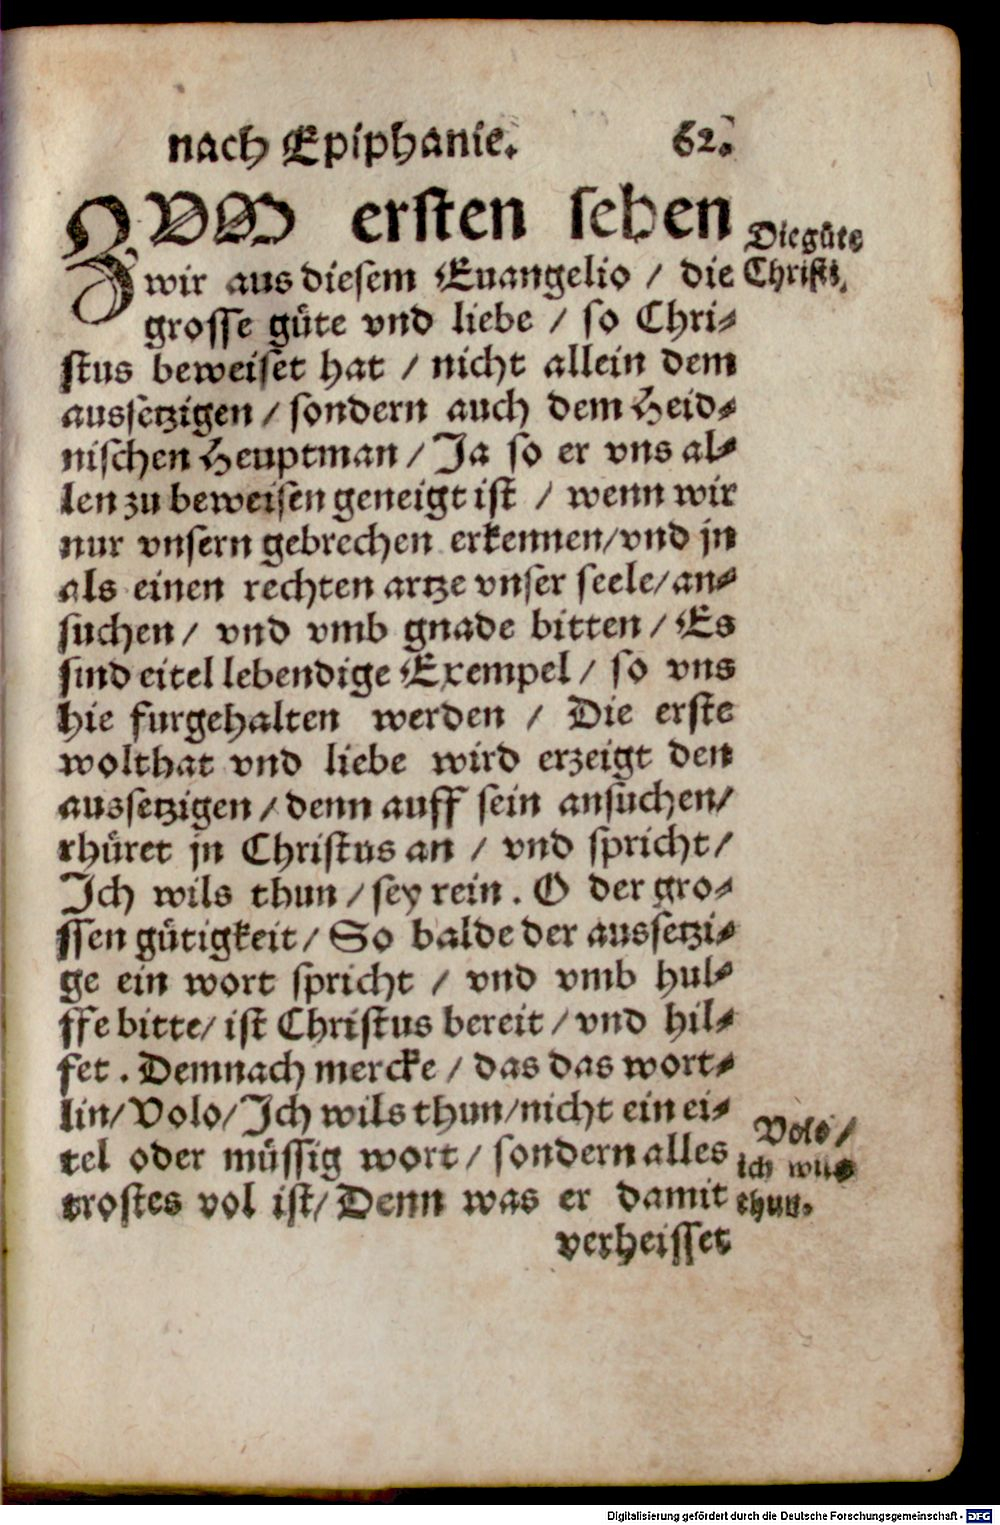 nach Epiphanie. 62.
ZVM ersten sehen
wir aus diesem Euangelio / die
grosse güte vnd liebe / so Chri⸗
stus beweiset hat / nicht allein dem
aussetzigen / sondern auch dem Heid⸗
nischen Heuptman / Ja so er vns al⸗
len zu beweisen geneigt ist / wenn wir
nur vnsern gebrechen erkennen/vnd jn
als einen rechten artze vnser seele/an⸗
suchen/ vnd vmb gnade bitten / Es
sind eitel lebendige Exempel / so vns
hie furgehalten werden / Die erste
wolthat vnd liebe wird erzeigt den
aussetzigen / denn auff sein ansuchen/
rhüret jn Christus an / vnd spricht/
Ich wils thun / sey rein . O der gro⸗
ssen gütigkeit / So balde der aussetzi⸗
ge ein wort spricht / vnd vmb hul⸗
ffe bitte/ ist Christus bereit / vnd hil⸗
fet . Demnach mercke / das das wort⸗
lin/ Volo/ Ich wils thun/nicht ein ei⸗
tel oder müssig wort / sondern alles
trostes vol ist/ Denn was er damit
verheisset
Die güte
Christi.
Volo /
ich wils
thun.
Digitalisierung gefördert durch die Deutsche Forschungsgemeinschaft - DFG